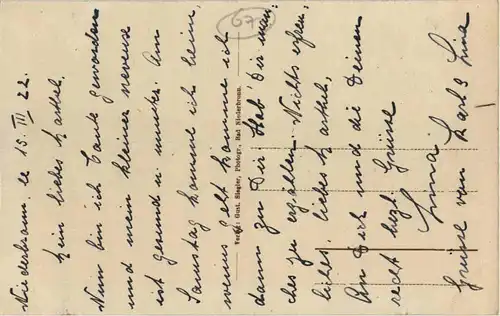 Niederbronn, le 15. III 22.
Mein liebes Kathel,
Nun bin ich Tante geworden
und mein kleiner neveuse
ist gesund u. munter. Am
Samstag komme ich heim,
wenns geht komme ich
dann zu Dir. Hab' Dir man:
ches zu erzählen. Nichts erfreu:
liches, liebes Kathel,
An Dich und die Deinen
recht herzl. Grüsse
Irma
Grüsse von Karl u.
Verlag: Gust. Riegle, Photogr., Bad Niederbronn.
67